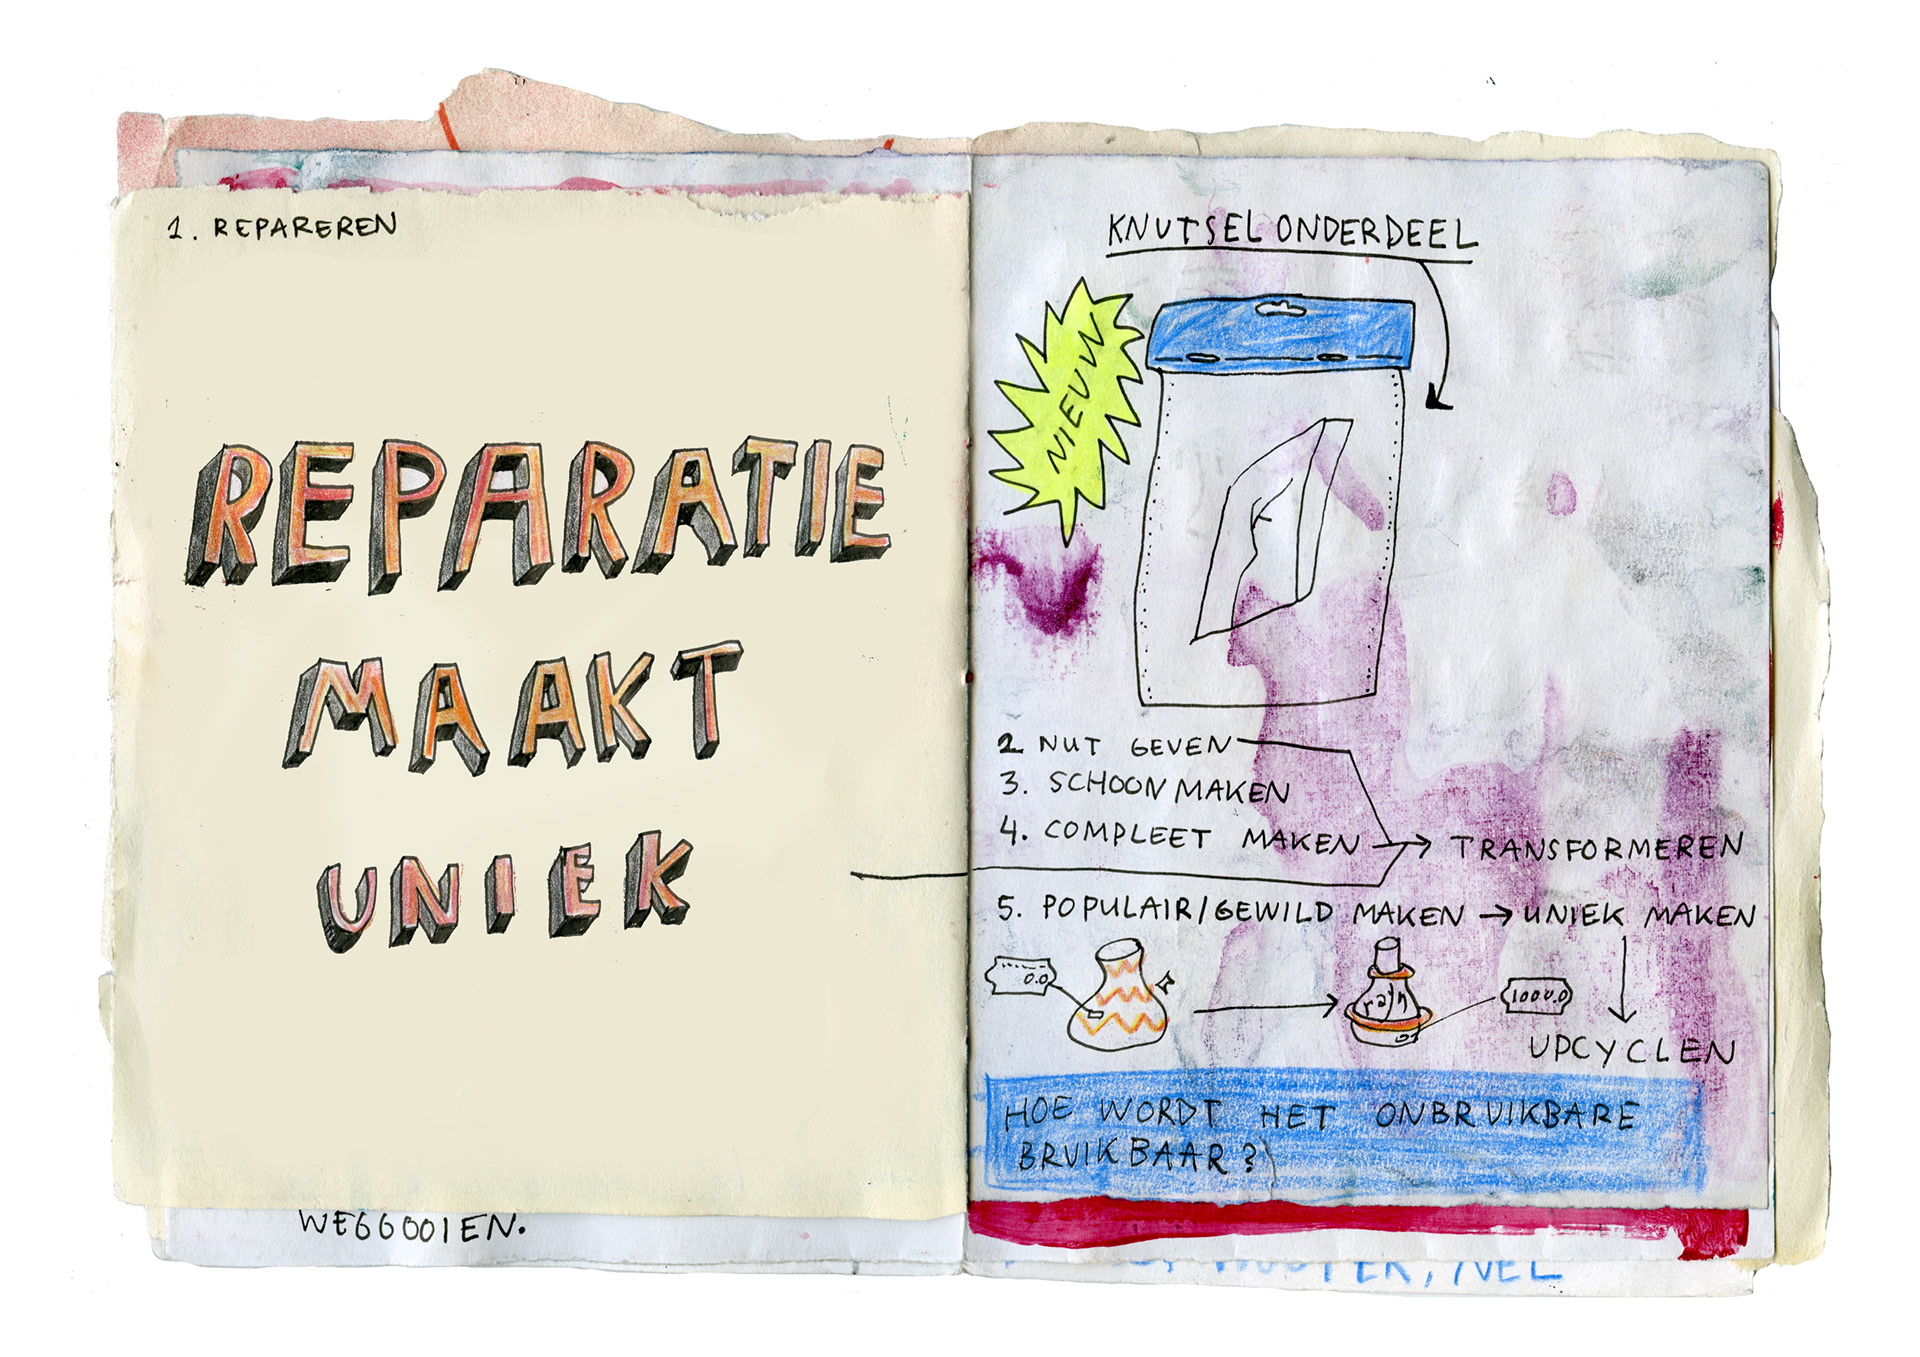 1. REPAREREN
REPARATIE
MAAKT
UNIEK
WEGGOOIEN.
KNUTSELONDERDEEL
NIEUW
2 NUT GEVEN
3. SCHOONMAKEN
4. COMPLEET MAKEN → TRANSFORMEREN
5. POPULAIR/GEWILD MAKEN → UNIEK MAKEN
0.0
100.0.0
UPCYCLEN
HOE WORDT HET ONBRUIKBARE
BRUIKBAAR?
, NEL